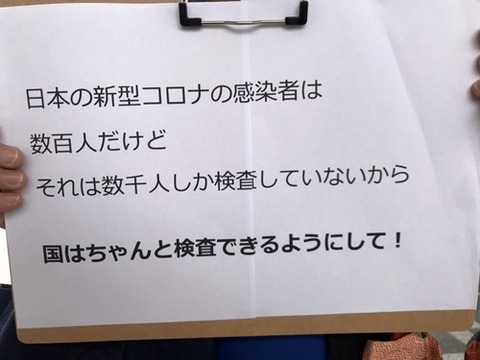 日本の新型コロナの感染者は
数百人だけど
それは数千人しか検査していないから
国はちゃんと検査できるようにして！